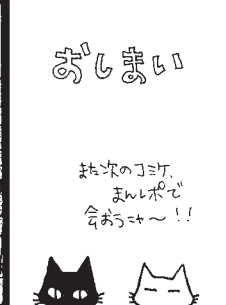 おしまい
また次のコミケ、
まんレポで
会おうニャ〜!!